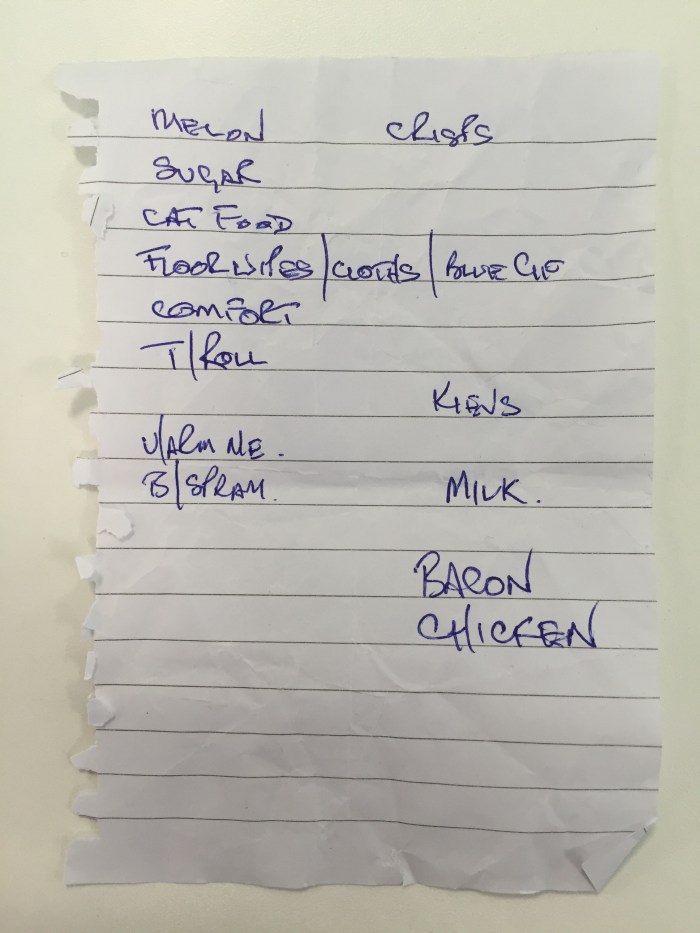 MELON CRISPS
SUGAR
CAT FOOD
FLOOR WIPES | CLOTHS | BLUE CIF
COMFORT
T/ROLL
KIEVS
V/ARM ME.
B/SPRAY.
MILK.
BACON
CHICKEN